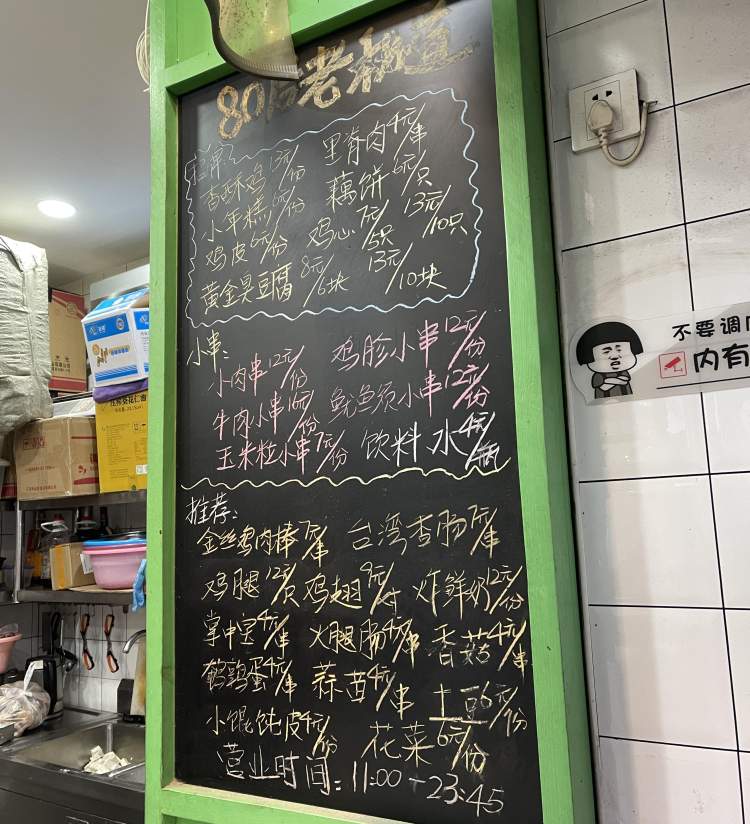 80后老
招牌:
香酥鸡13元/份 里脊肉4元/串
小年糕6元/份 藕饼6元/只
鸡皮6元/份 鸡心7元/5只 13元/10只
黄金臭豆腐8元/6块 13元/10块
小串:
小肉串12元/份 鸡胗小串12元/份
牛肉小串16元/份 鱿鱼须小串12元/份
玉米粒小串7元/份 饮料水4元/瓶
推荐:
金丝鸡肉棒7元/串 台湾香肠7元/串
鸡腿12元/只 鸡翅9元/ 炸鲜奶12元/份
掌中宝4元/串 火腿肠4元/串 香菇4元/串
鹌鹑蛋4元/串 蒜苗4元/串 土豆6元/份
小馄饨皮4元/份 花菜6元/份
营业时间:11:00-23:45
不要调
内有